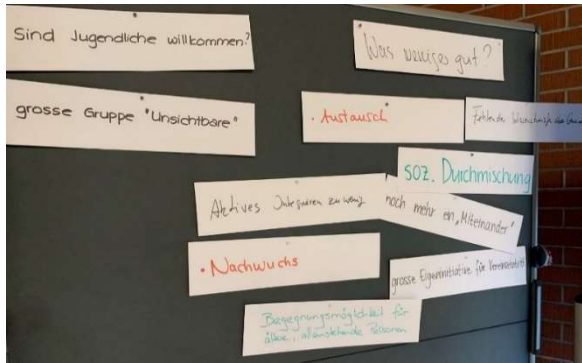 Sind Jugendliche willkommen?
Was weniger gut?
grosse Gruppe "Unsichtbare"
• Austausch
Fehlende
soz. Durchmischung
Aktives Integrieren zu wenig
noch mehr ein „Miteinander"
• Nachwuchs
grosse Eigeninitiative für Vereinseintritt
Begegnungsmöglichkeit für
ältere, alleinstehende Personen